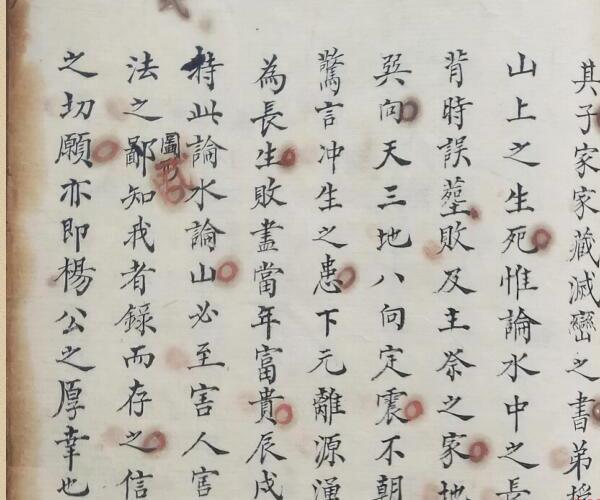 其子家家藏滅蠻之書弟
山上之生死惟論水中之長
背時誤塟敗及主祭之家地
巽向天三地八向定震不朝
驚言冲生之患下元離源
為長生敗盡當年富貴辰戌
特此論水論山必至害人害
法之鄙知我者錄而存之信
圖
之切願亦即楊公之厚幸也